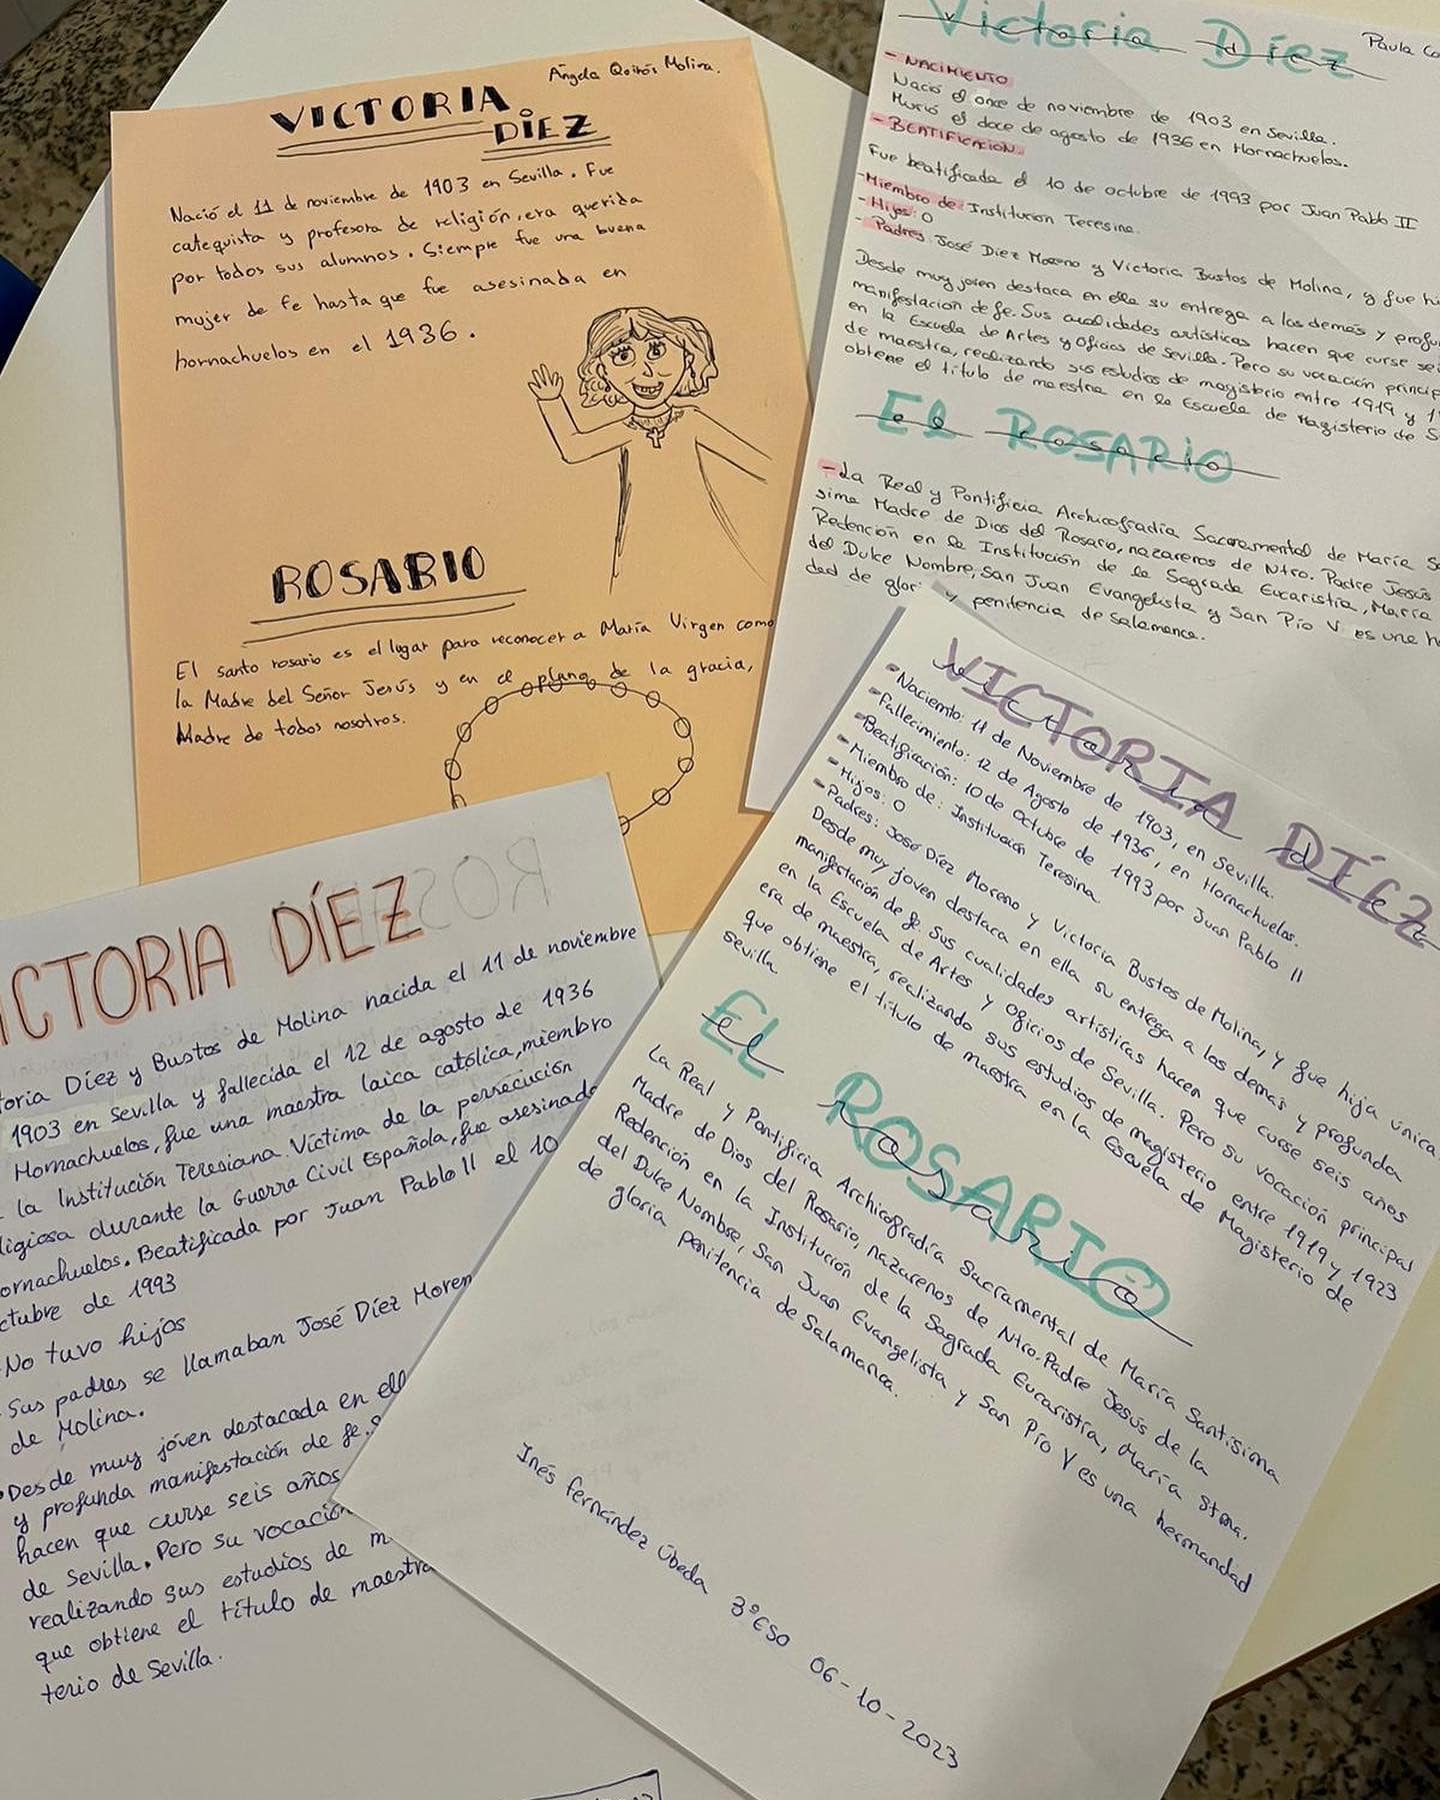 Ángela Quirós Molina.
VICTORIA
DÍEZ
Nació el 11 de noviembre de 1903 en Sevilla. Fue
catequista y profesora de religión, era querida
por todos sus alumnos. Siempre fue una buena
mujer de fe hasta que fue asesinada en
hornachuelos en el 1936.
ROSARIO
El santo rosario es el lugar para reconocer a María Virgen como
la Madre del Señor Jesús y en el plano de la gracia,
Madre de todos nosotros.
Victoria Díez
victoria díez
Paula Co
- NACIMIENTO
Nació el once de noviembre de 1903 en Sevilla.
Murió el doce de agosto de 1936 en Hornachuelos.
- BEATIFICACION
Fue beatificada el 10 de octubre de 1993 por Juan Pablo II
-Miembro de: Institucion Teresina.
- Hijos: O
- Padres: José Díez Moreno y Victoria Bustos de Molina, y fue hi
Desde muy joven destaca en ella su entrega a los demás y profu
manifestacion de fe. Sus cualidades artísticas hacen que curse sei
en la Escuela de Artes y Oficios de Sevilla. Pero su vocación princip
de maestra, realizando sus estudios de magisterio entre 1919 y 1
obtiene el título de maestra en la Escuela de Magisterio de S
El ROSARIO
el rosario
-La Real y Pontificia Archicofradía Sacaramental de María S
sima Madre de Dios del Rosario, nazarenos de Ntro. Padre Jesús
Redención en la Institución de la Sagrada Eucaristía, María
del Dulce Nombre, San Juan Evangelista y San Pío V es una h
dad de glor y penitencia de Salamanca.
VICTORIA DÍEZ
victoria díez
-Naciemto: 11 de Noviembre de 1903, en Sevilla.
-Fallecimiento: 12 de Agosto de 1936, en Hornachuelos.
-Beatificación: 10 de Octubre de 1993 por Juan Pablo II
-Miembro de: Institucion Teresina.
-Hijos: O
-Padres: José Díez Moreno y Victoria Bustos de Molina, y fue hija única.
Desde muy joven destaca en ella su entega a los demás y profunda
manifestación de fe. Sus cualidades artísticas hacen que curse seis años
en la Escuela de Artes y oficios de Sevilla. Pero su vocación principal
era de maestra, realizando sus estudios de magisterio entre 1919 y 1923
que obtiene el título de maestra en la Escuela de Magisterio de
sevilla
EL ROSARIO
el rosario
La Real y Pontificia Archicofradía Sacramental de María Santísima
Madre de Dios del Rosario, nazarenos de Ntro. Padre Jesús de la
Redención en la Institución de la Sagrada Eucaristía, María Stma.
del Dulce Nombre, San Juan Evangelista y San Pío V es una hermandad
de gloria penitencia de Salamanca.
Inés fernández Úbeda 3ºESO 06-10-2023
ROS
ICTORIA DÍEZ
toria Díez y Bustos de Molina nacida el 11 de noviembre
1903 en Sevilla y fallecida el 12 de agosto de 1936
Hornachuelos, fue una maestra laica católica, miembro
la Institución Teresiana. Víctima de la persecución
ligiosa durante la Guerra Civil Española, fue asesinada
ornachuelos. Beatificada por Juan Pablo II el 10
ctubre de 1993
No tuvo hijos
Sus padres se llamaban José Díez Moren
de Molina.
Desde muy jóven destacada en ell
y profunda manifestación de fe. S
hacen que curse seis años
de Sevilla. Pero su vocación
realizando sus estudios de m
que obtiene el título de maestra
terio de Sevilla.